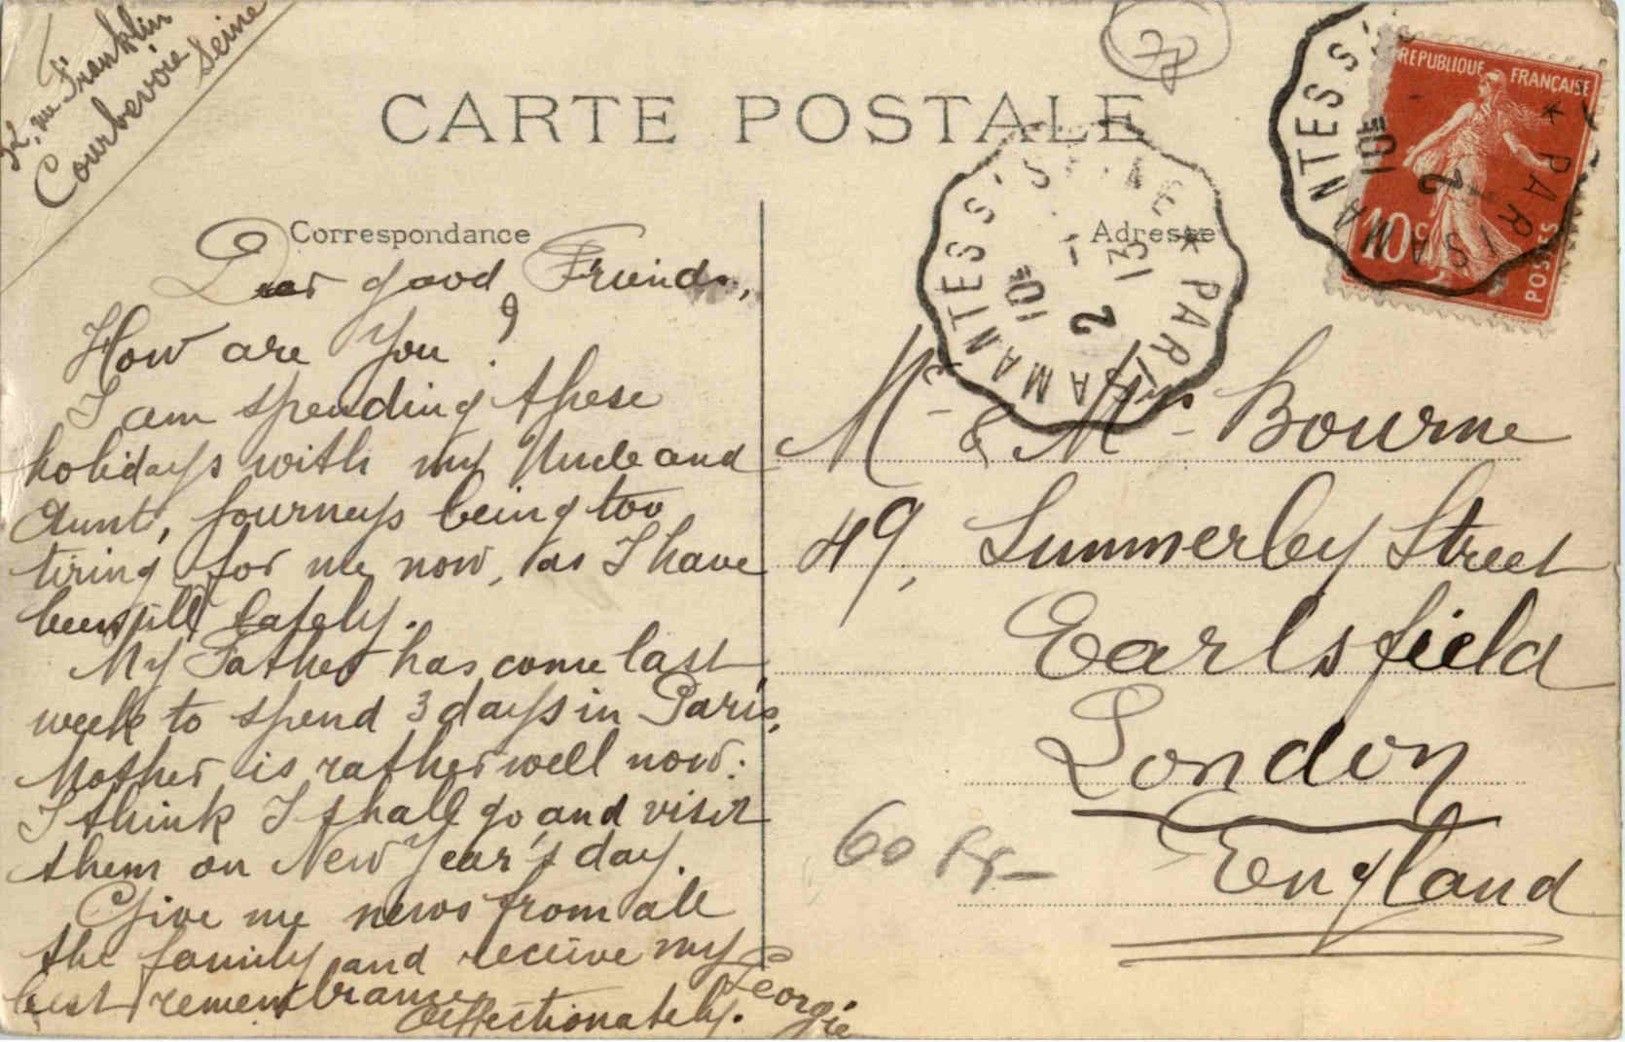 32, rue Franklin
Courbevoie Seine
CARTE POSTALE
Correspondance
Dear good Friends,
How are you?
I am spending these
holidays with my Uncle and
Aunt, journeys being too
tiring for me now, as I have
been ill lately.
My Father has come last
week to spend 3 days in Paris.
Mother is rather well now:
I think I shall go and visit
them on New Year's day.
Give me news from all
the family and receive my
best remembrance
affectionately.
Georgie
Adresse
M & Mrs Bourne
49, Summerley Street
Earlsfield
London
England
60
REPUBLIQUE FRANÇAISE
10c
POSTES
MANTES S
* PARIS A MANTES S
10E
2
* PARIS A
10E
2
1
13